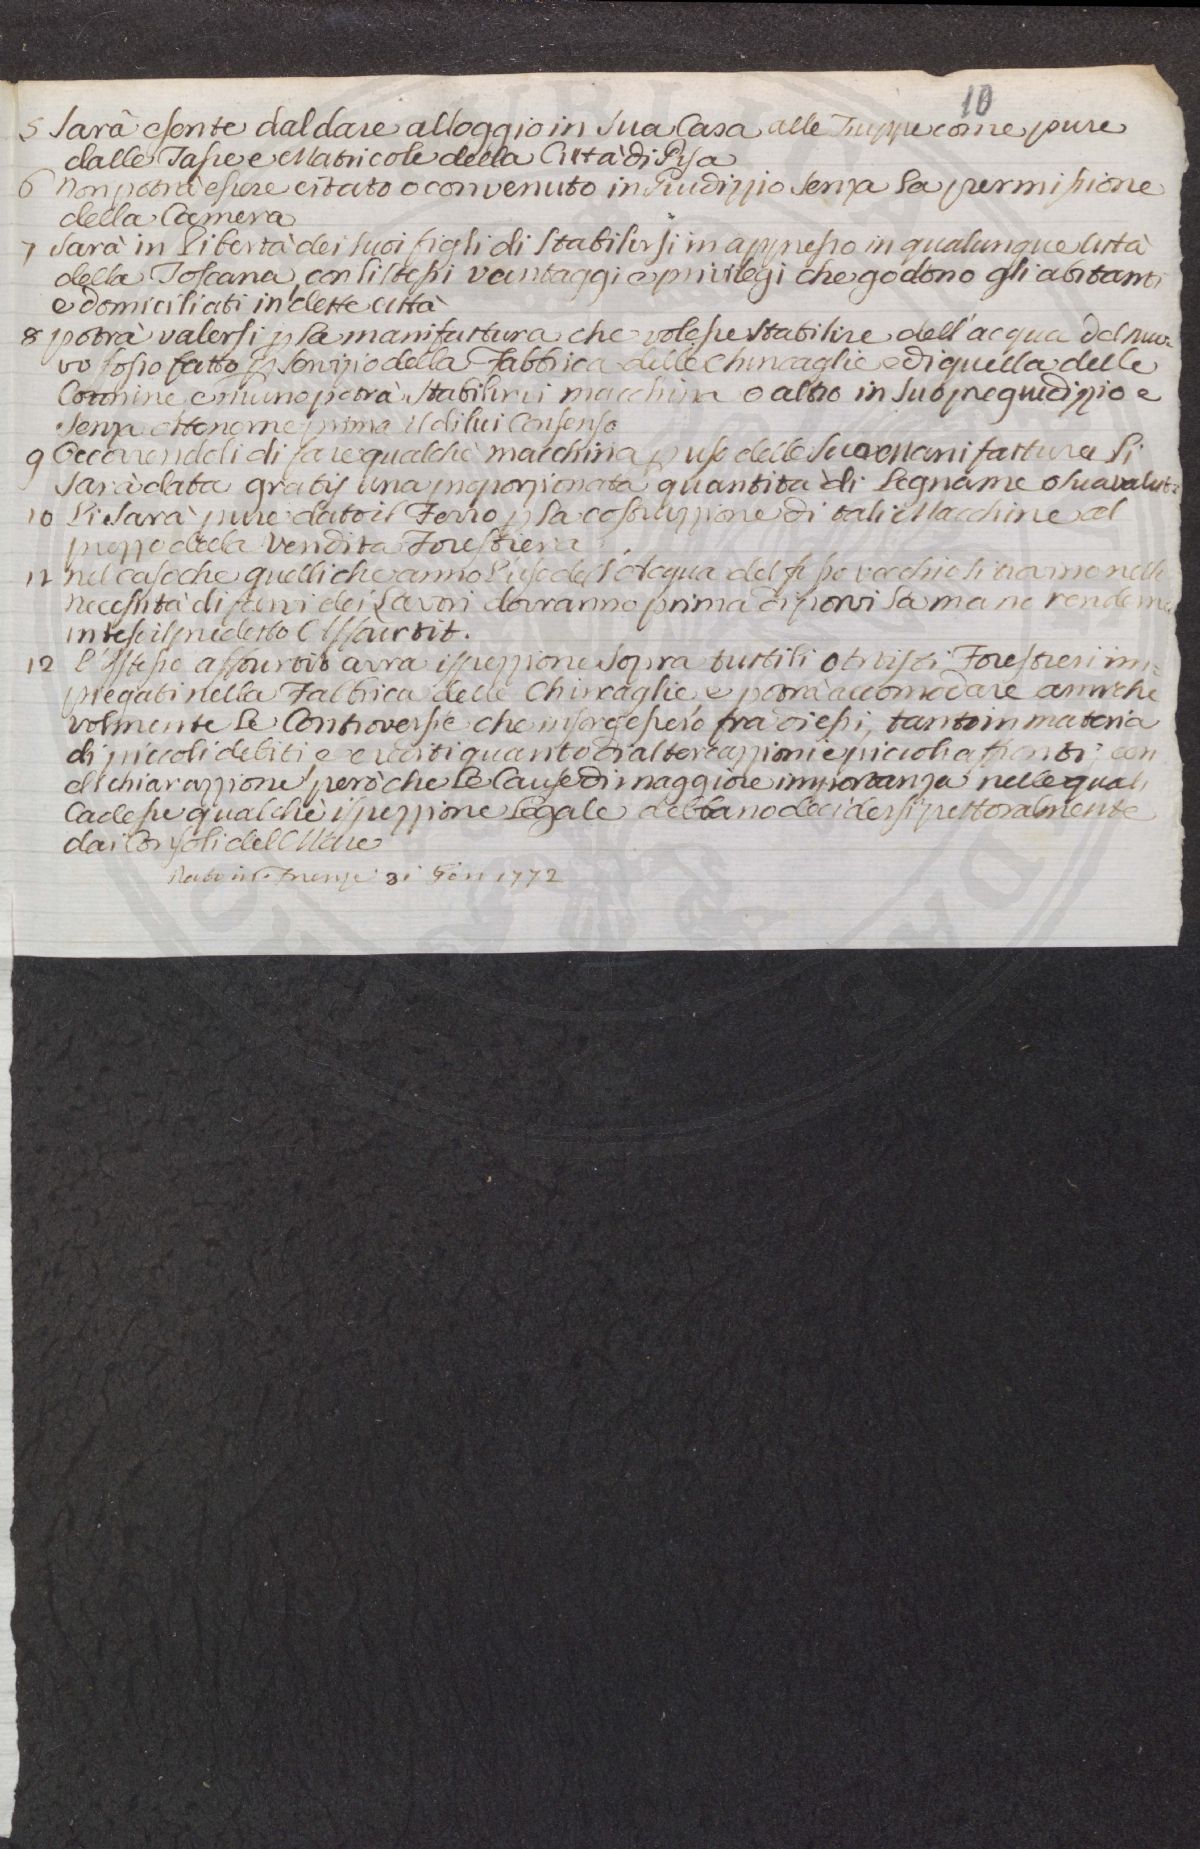 10
5 Sarà esente dal dare alloggio in sua Casa alle Truppe come pure
dalle Tasse e Matricole della Città di Pisa
6 Non potrà essere citato o convenuto in Giudizzio senza la permissione
della Camera
7 Sarà in Libertà dei suoi figli di stabilirsi in appresso in qualunque Città
della Toscana con li stessi vantaggi e privilegi che godono gli abitanti
e domiciliati in dette città
8 potrà valersi p la manifattura che volesse stabilire dell'acqua del nuo=
vo fosso fatto p servizio della Fabbrica delle Chincaglie e di quella delle
Comine e niuno potrà stabilirvi macchina o altro in suo pregiudizzio e
senza ottenerne prima il di lui Consenso
9 Occorrendoli di fare qualche macchina p uso delle sue Manifatture li
sarà data gratis una proporzionata quantità di Legname o sua valuta
10 Li sarà pure dato il Ferro p la costruzzione di tali Macchine al
prezzo della Vendita Forestiera
11 nel caso che quelli che anno l'uso dell'Acqua del fosso vecchio si trovino nella
necessità di farvi dei Lavori dovranno prima di porvi la mano renderne
inteso il predetto Assourtit.
12 L'istesso assourtit avra ispezzione sopra tutti li Artisti Forestieri im=
piegati nella Fabbrica delle Chincaglie e potrà accomodare amiche
volmente le Controversie che insorgessero fra di essi, tanto in materia
di piccoli debiti e crediti quanto di altercazzioni e piccioli affronti; con
dichiarazzione però che le Cause di maggiore importanza nelle quali
Cadesse qualche ispezzione Legale debbano decidersi pettoralmente
dai Consoli del Mare
Dato in Firenze 31 Gen 1772